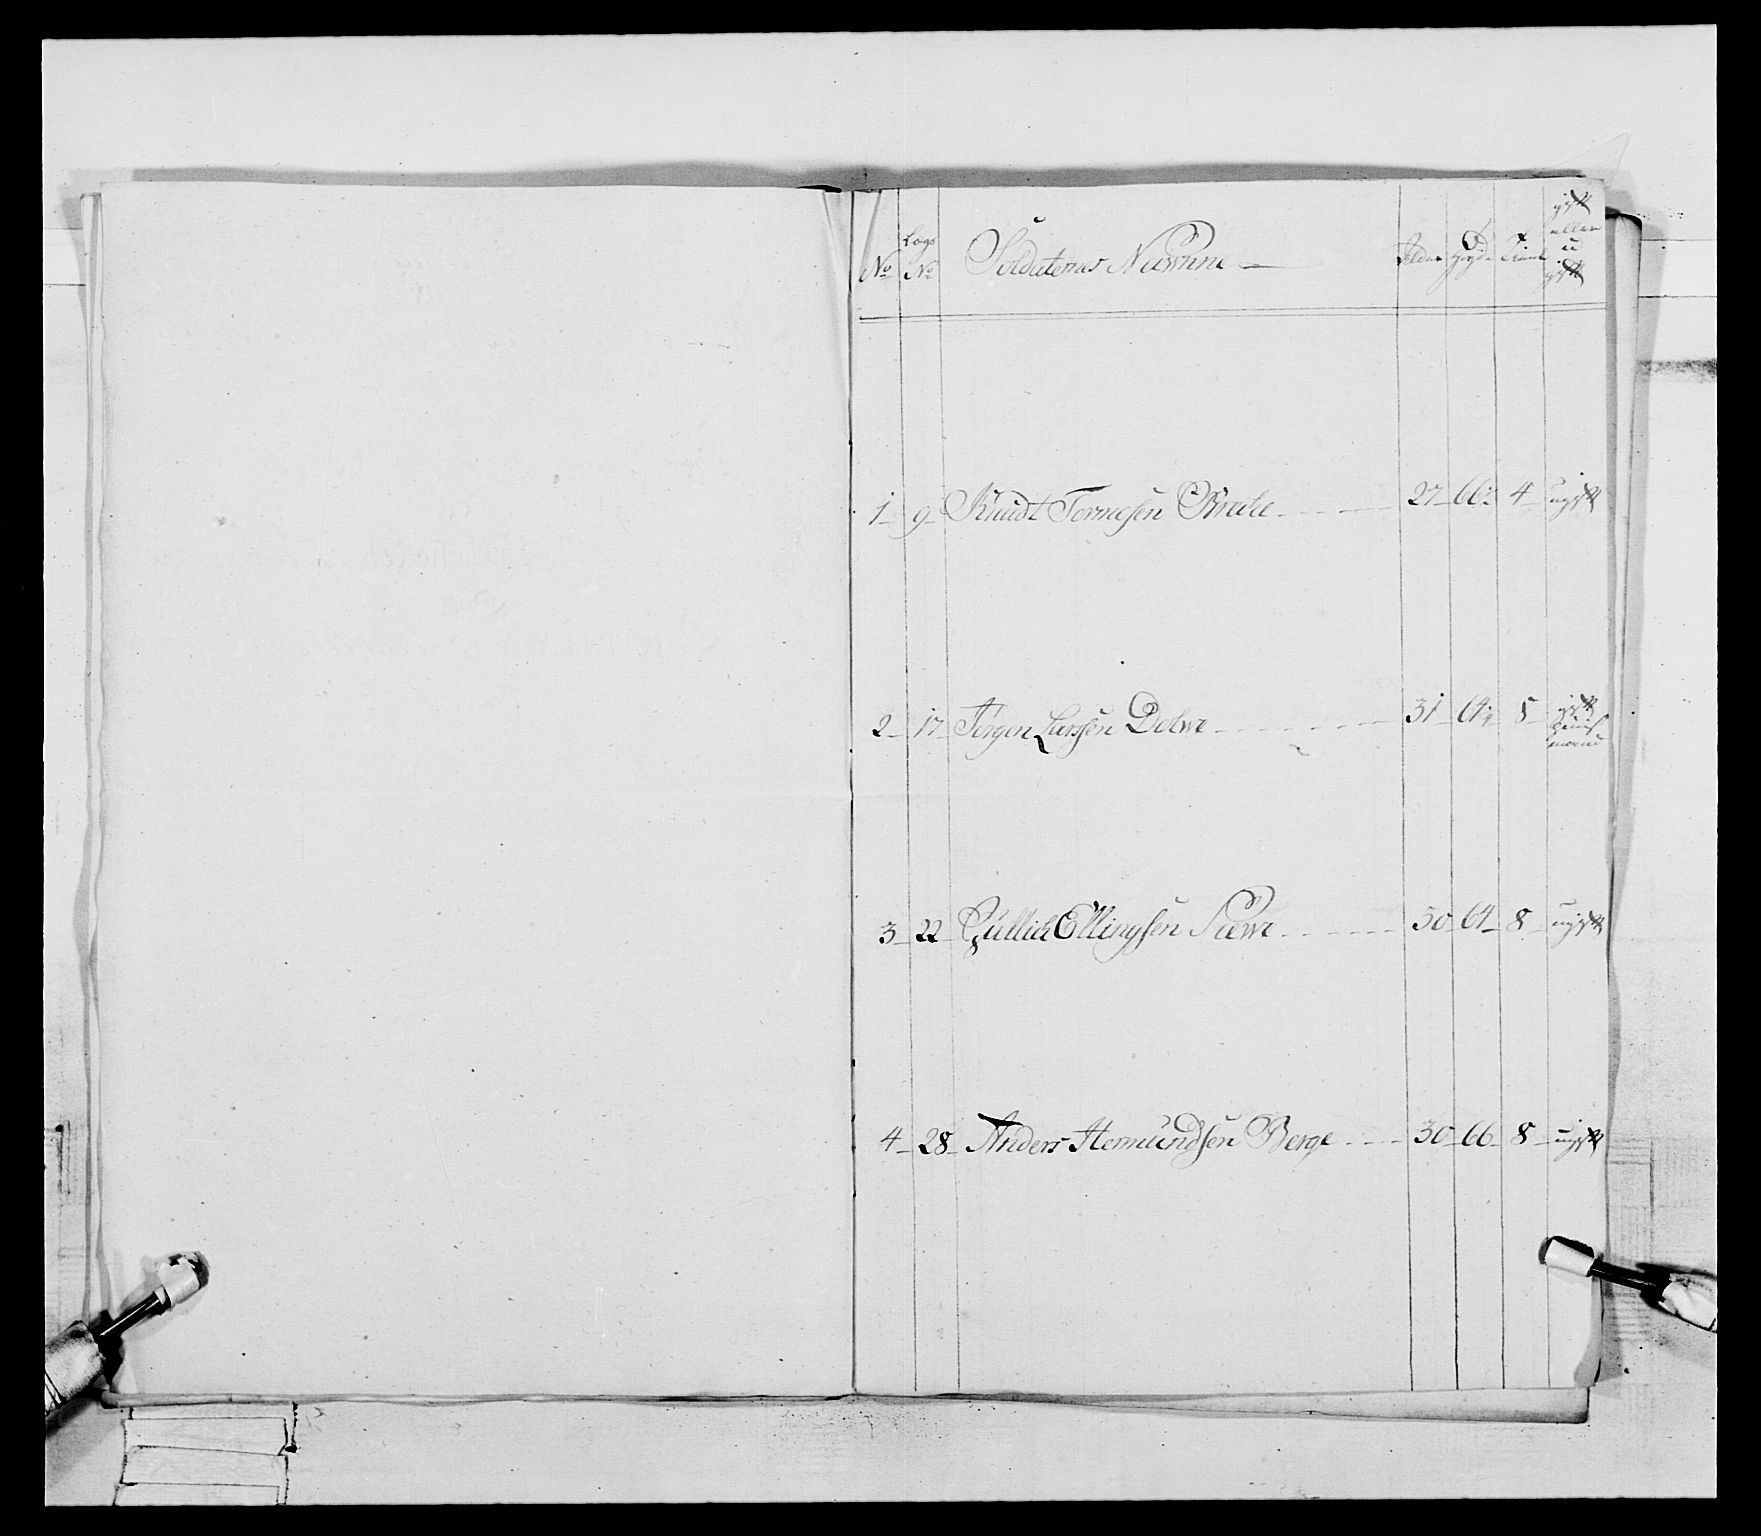 No Lægs No Soldaternes Nawhne Alder Høyde Tient gift eller u gift
1 9 Knudt Tormosen Bracke 27 66½ 4 ugift
2 17 Jørgen Larssen Dolwe 31 64¼ 8 gift Huusmand
3 22 Gullich Ellingsen Sæwe 30 64 8 ugift
4 28 Anders Hermundsen Berge 30 66 8 ugift